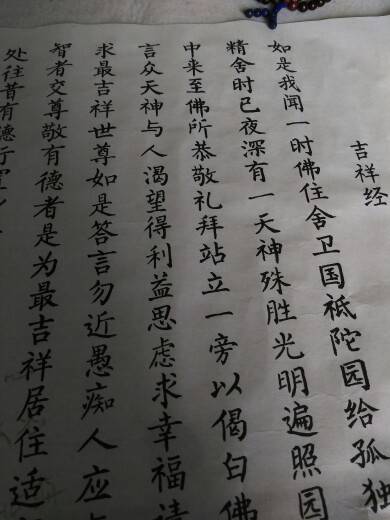 吉祥经
如是我闻一时佛住舍卫国祇陀园给孤独
精舍时已夜深有一天神殊胜光明遍照园
中来至佛所恭敬礼拜站立一旁以偈白佛
言众天神与人渴望得利益思虑求幸福请
求最吉祥世尊如是答言勿近愚痴人应与
智者交尊敬有德者是为最吉祥居住适
处往昔有德行置